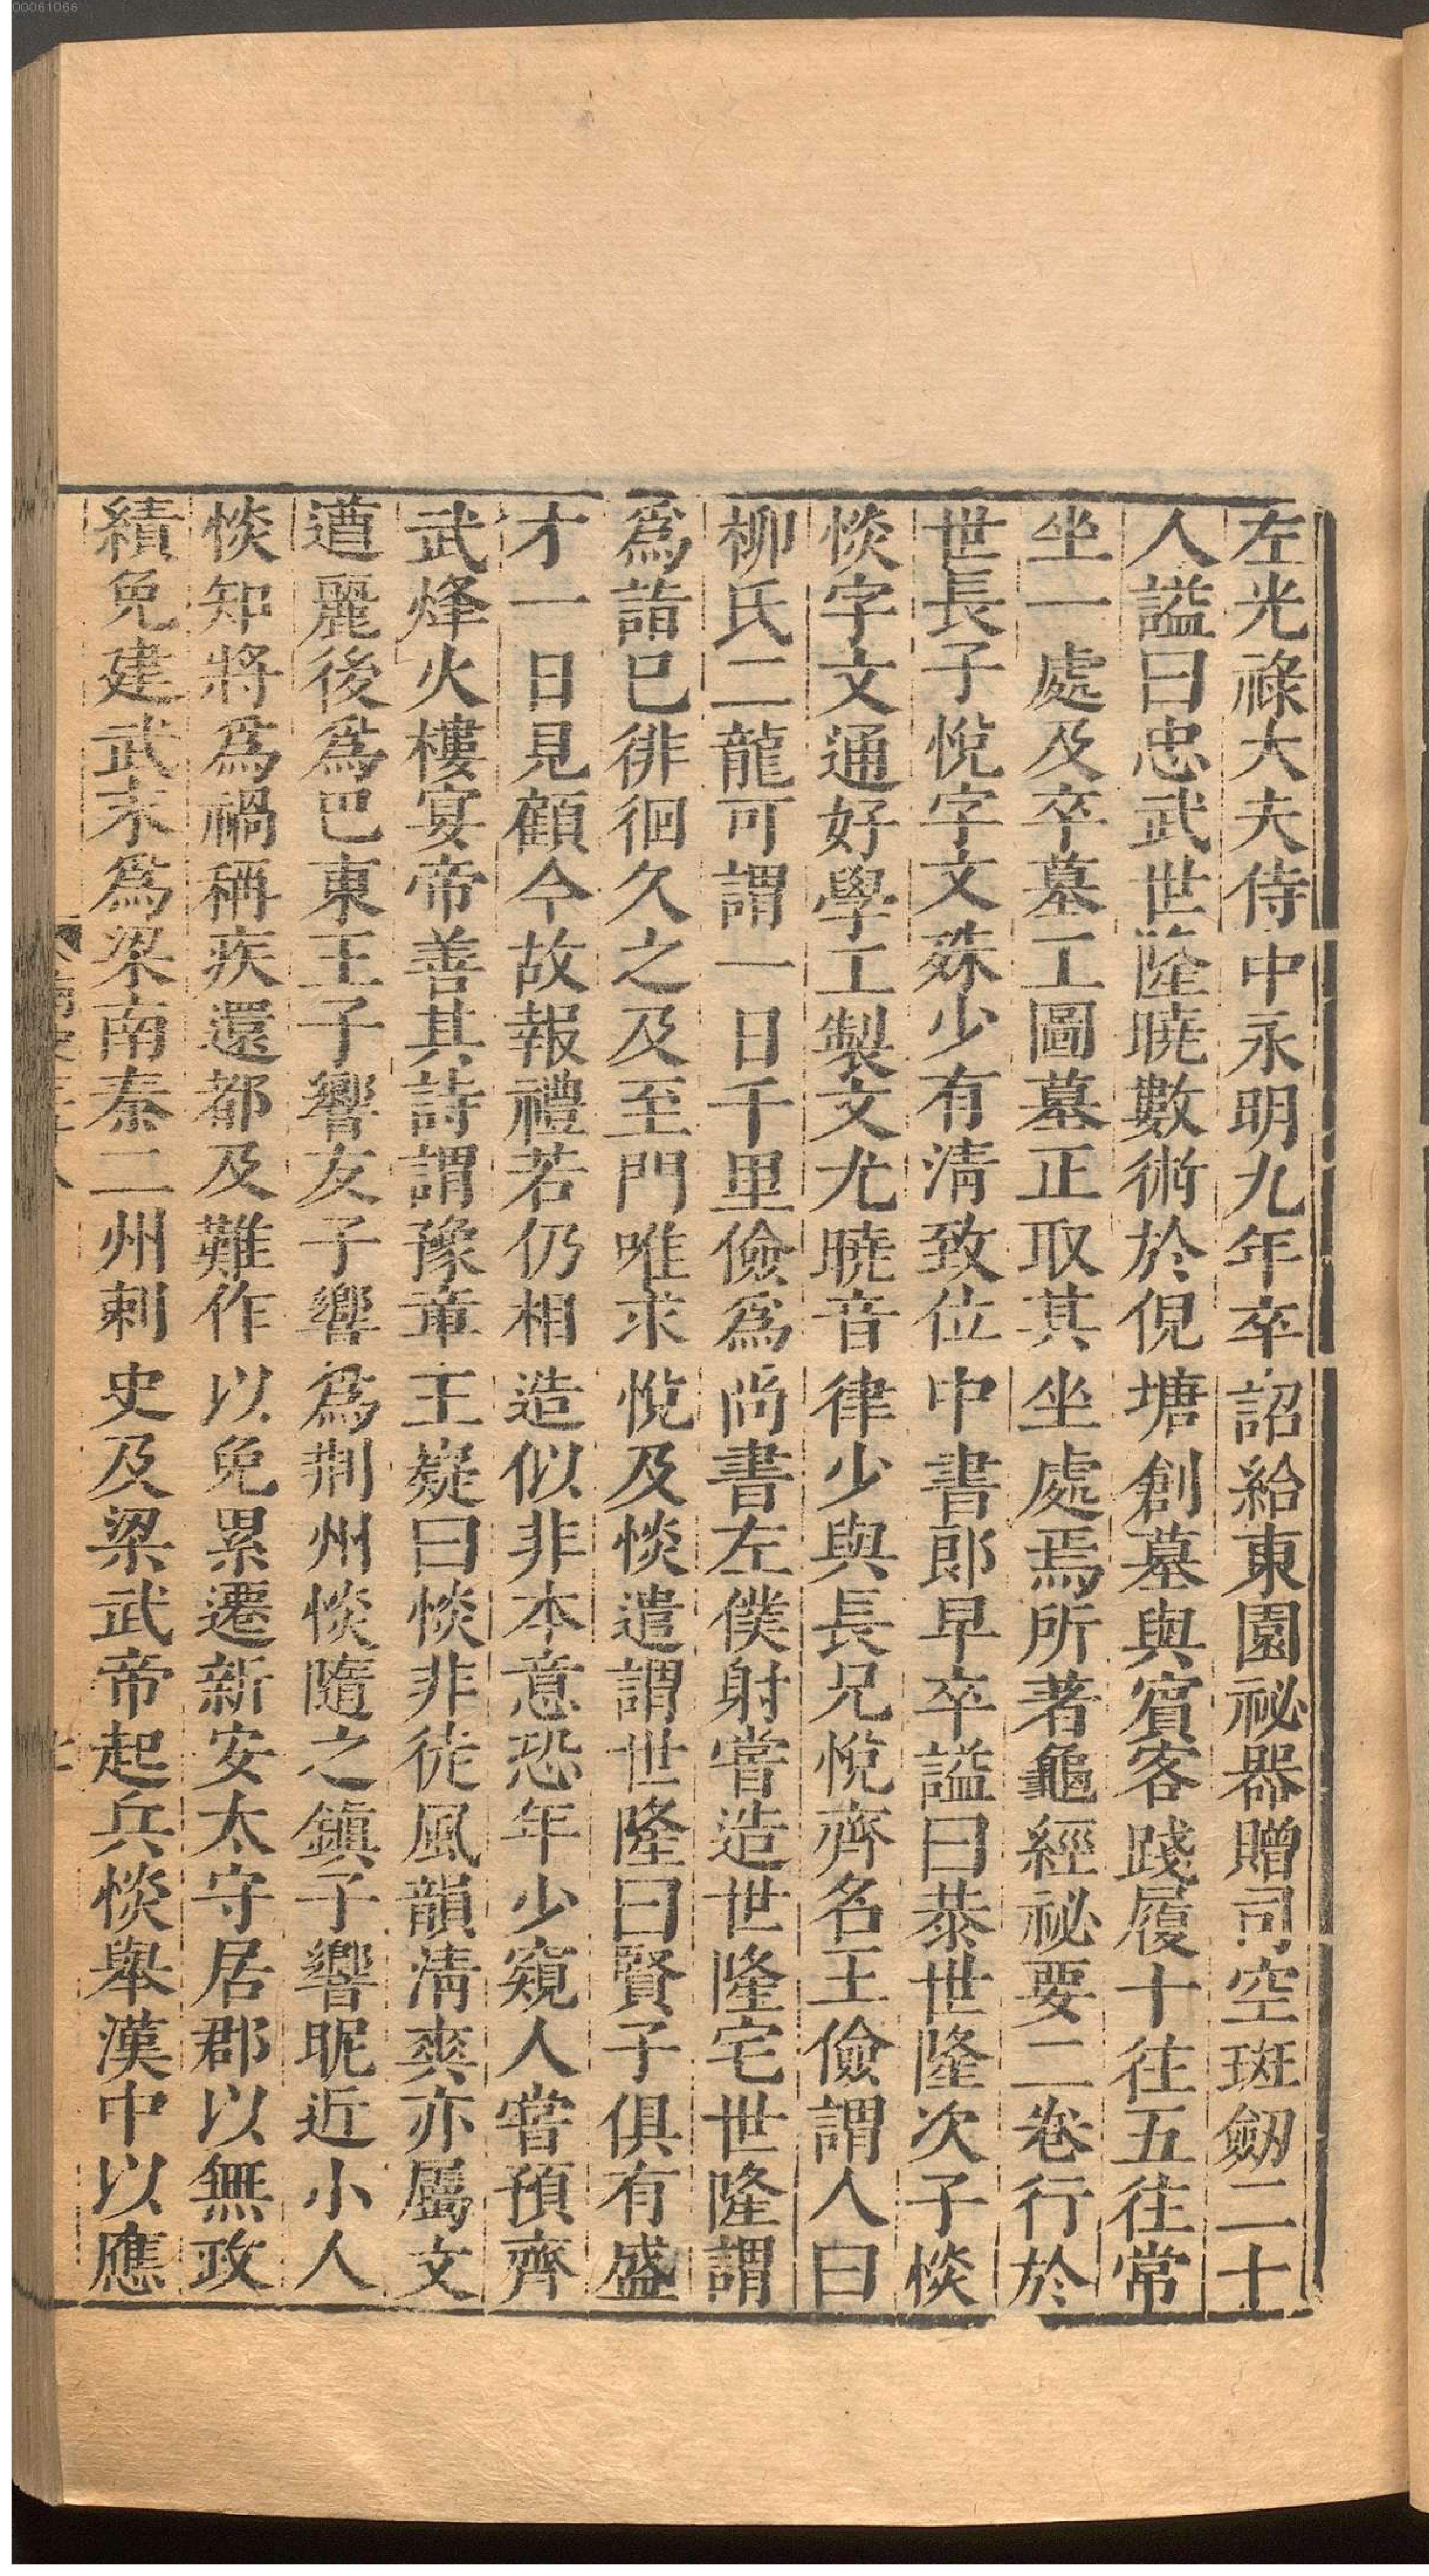 00061066
左光祿大夫侍中永明九年卒詔給東園祕器贈司空斑劒二十
人謚曰忠武世隆曉數術於倪塘創墓與賓客踐履十往五往常
坐一處及卒墓工圖墓正取其坐處焉所著龜經祕要二卷行於
世長子悅字文殊少有清致位中書郎早卒謚曰恭世隆次子惔
惔字文通好學工製文尤曉音律少與長兄悅齊名王儉謂人曰
柳氏二龍可謂一日千里儉爲尚書左僕射嘗造世隆宅世隆謂
爲詣巳徘徊久之及至門唯求悅及惔遣謂世隆曰賢子俱有盛
才一日見顧今故報禮若仍相造似非本意恐年少窺人嘗預齊
武烽火樓宴帝善其詩謂豫章王嶷曰惔非徒風韻清爽亦屬文
遒麗後爲巴東王子響友子響爲荆州惔隨之鎮子響昵近小人
惔知將爲禍稱疾還都及難作以免累遷新安太守居郡以無政
績免建武末爲梁南秦二州刺史及梁武帝起兵惔舉漢中以應